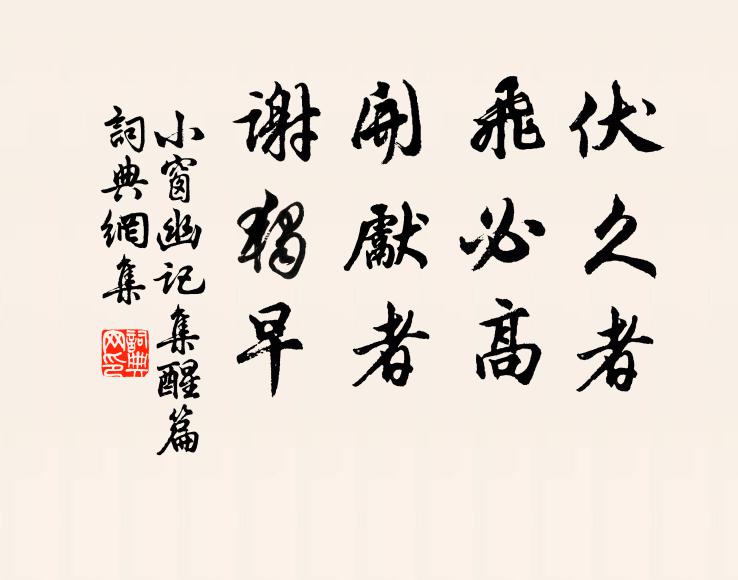 伏久者
飛必高
開獻者
謝獨早
小窗幽記集醒篇
詞典網集
詞典
网印